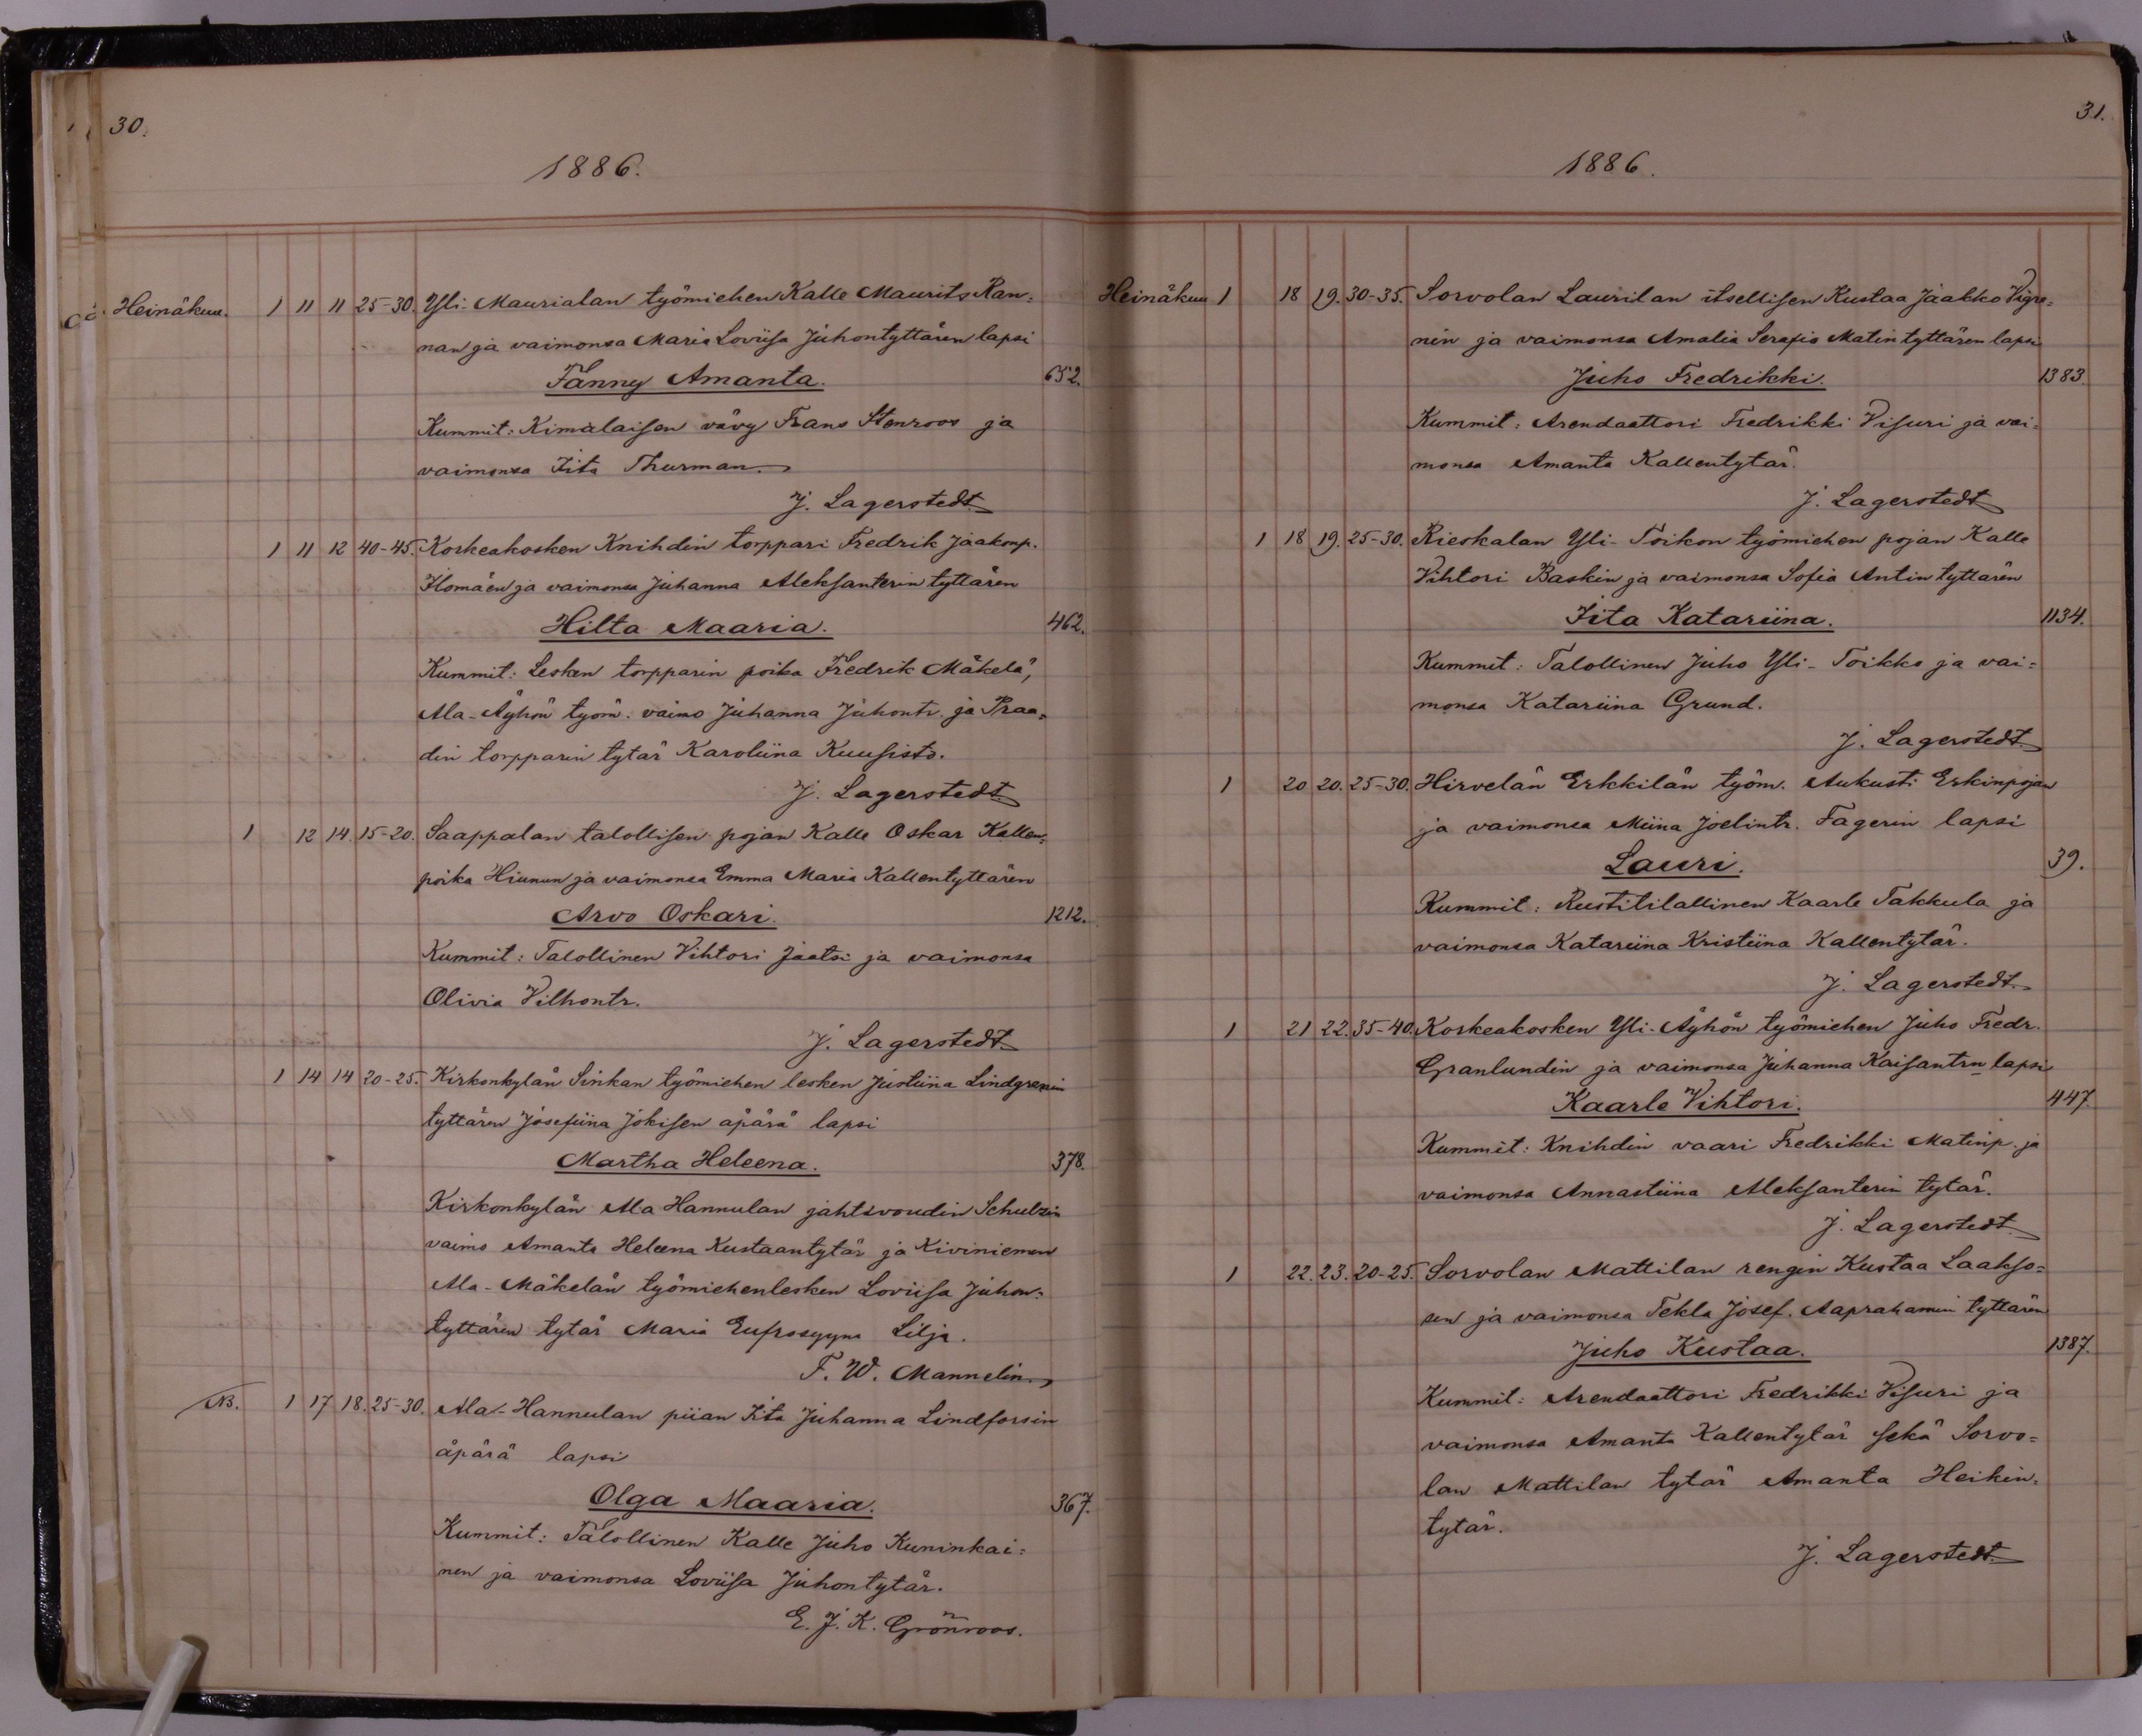 30.
1886.
Heinäkuu. 1 11 11 25-30. Yli-Maurialan työmiehen Kalle Maurits Ran-
nan ja vaimonsa Maria Loviisa Juhontyttären lapsi
Fanny Amanta. 652.
Kummit: Kimalaisen vävy Frans Stenroos ja
vaimonsa Iita Thurman.
J. Lagerstedt
1 11 12 40-45. Korkeakosken Knihdin torppari Fredrik Jaakonp.
Ilomäen ja vaimonsa Juhanna Aleksanterin tyttären
Hilta Maaria. 462.
Kummit: Lesken torpparin poika Fredrik Mäkelä,
Ala-Äyhön työm. vaimo Juhanna Juhontr. ja Praa-
din torpparin tytär Karoliina Kuusisto.
J. Lagerstedt.
1 12 14. 15-20. Saappalan talollisen pojan Kalle Oskar Kallen-
poika Hiunun ja vaimonsa Emma Maria Kallentyttären
Arvo Oskari. 1212.
Kummit: Talollinen Vihtori Jaatsi ja vaimonsa
Olivia Vilhontr.
J. Lagerstedt
1 14 14 20-25. Kirkonkylän Sinkan työmiehen lesken Justiina Lindgrenin
tyttären Josefiina Jokisen äpärä lapsi
Martha Heleena. 378.
Kirkonkylän Ala Hannulan jahtivoudin Schulzin
vaimo Amanta Heleena Kustaantytär ja Kiviniemen
Ala-Mäkelän työmiehenlesken Loviisa Juhon-
tyttären tytär Maria Eufrosyyna Lilja.
F. W. Mannelin.
NB. 1 17 18. 25-30. Ala-Hannulan piian Iita Juhanna Lindforsin
äpärä lapsi
Olga Maaria. 367.
Kummit: Talollinen Kalle Juho Kuninkai-
nen ja vaimonsa Loviisa Juhontytär.
E. J. K. Grönroos.
31.
1886.
Heinäkuu 1 18 19. 30-35. Sorvolan Laurilan itsellisen Kustaa Jaakko Vigre-
nin ja vaimonsa Amalia Serafia Matin tyttären lapsi
Juho Fredrikki. 1383.
Kummit: Arendaattori Fredrikki Visuri ja vai-
monsa Amanta Kallentytär.
J. Lagerstedt
1 18 19. 25-30. Rieskalan Yli-Toikon työmiehen pojan Kalle
Vihtori Baskin ja vaimonsa Sofia Antin tyttären
Iita Katariina. 1134.
Kummit: Talollinen Juho Yli-Toikko ja vai-
monsa Katariina Grund.
J. Lagerstedt.
1 20 20. 25-30. Hirvelän Erkkilän työm. Aukusti Erkinpojan
ja vaimonsa Miina Joelintr. Fagerin lapsi
Lauri. 39.
Kummit: Rustitilallinen Kaarle Takkula ja
vaimonsa Katariina Kristiina Kallentytär.
J. Lagerstedt.
1 21 22. 35-40. Korkeakosken Yli-Äyhön työmiehen Juho Fredr.
Granlundin ja vaimonsa Juhanna Kaisantrn lapsi
Kaarle Vihtori. 447.
Kummit: Knihdin vaari Fredrikki Matinp. ja
vaimonsa Annastiina Aleksanterin tytär.
J. Lagerstedt
1 22. 23. 20-25. Sorvolan Mattilan rengin Kustaa Laakso-
sen ja vaimonsa Tekla Josef. Aaprahamin tyttären
Juho Kustaa. 1387.
Kummit: Arendaattori Fredrikki Visuri ja
vaimonsa Amanta Kallentytär sekä Sorvo-
lan Mattilan tytär Amanta Heikin-
tytär.
J. Lagerstedt.